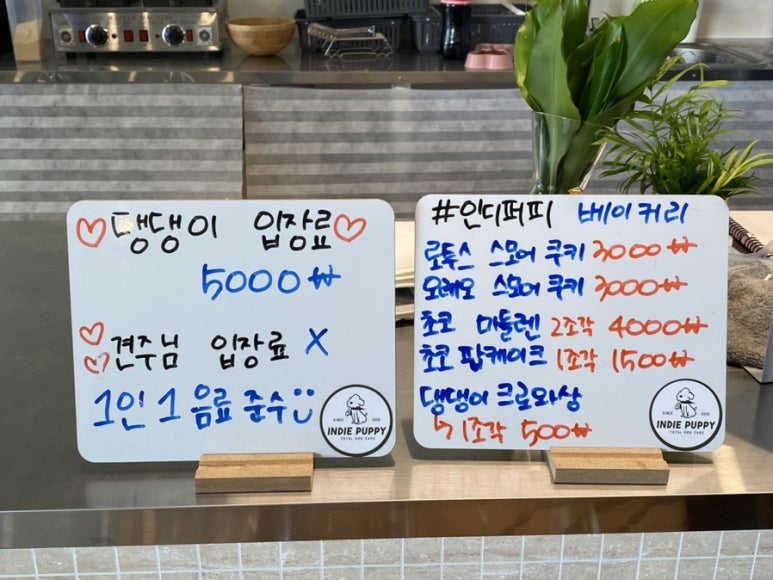 댕댕이 입장료
5000₩
견주님 입장료 X
1인 1 음료 준수
SINCE 2020
INDIE PUPPY
TOTAL DOG CARE
#인디퍼피 베이커리
로투스 스모어 쿠키 3000₩
오레오 스모어 쿠키 3000₩
초코 마들렌 2조각 4000₩
초코 팝케이크 1조각 1500₩
댕댕이 크로와상
↳ 1조각 500₩
SINCE 2020
INDIE PUPPY
TOTAL DOG CARE